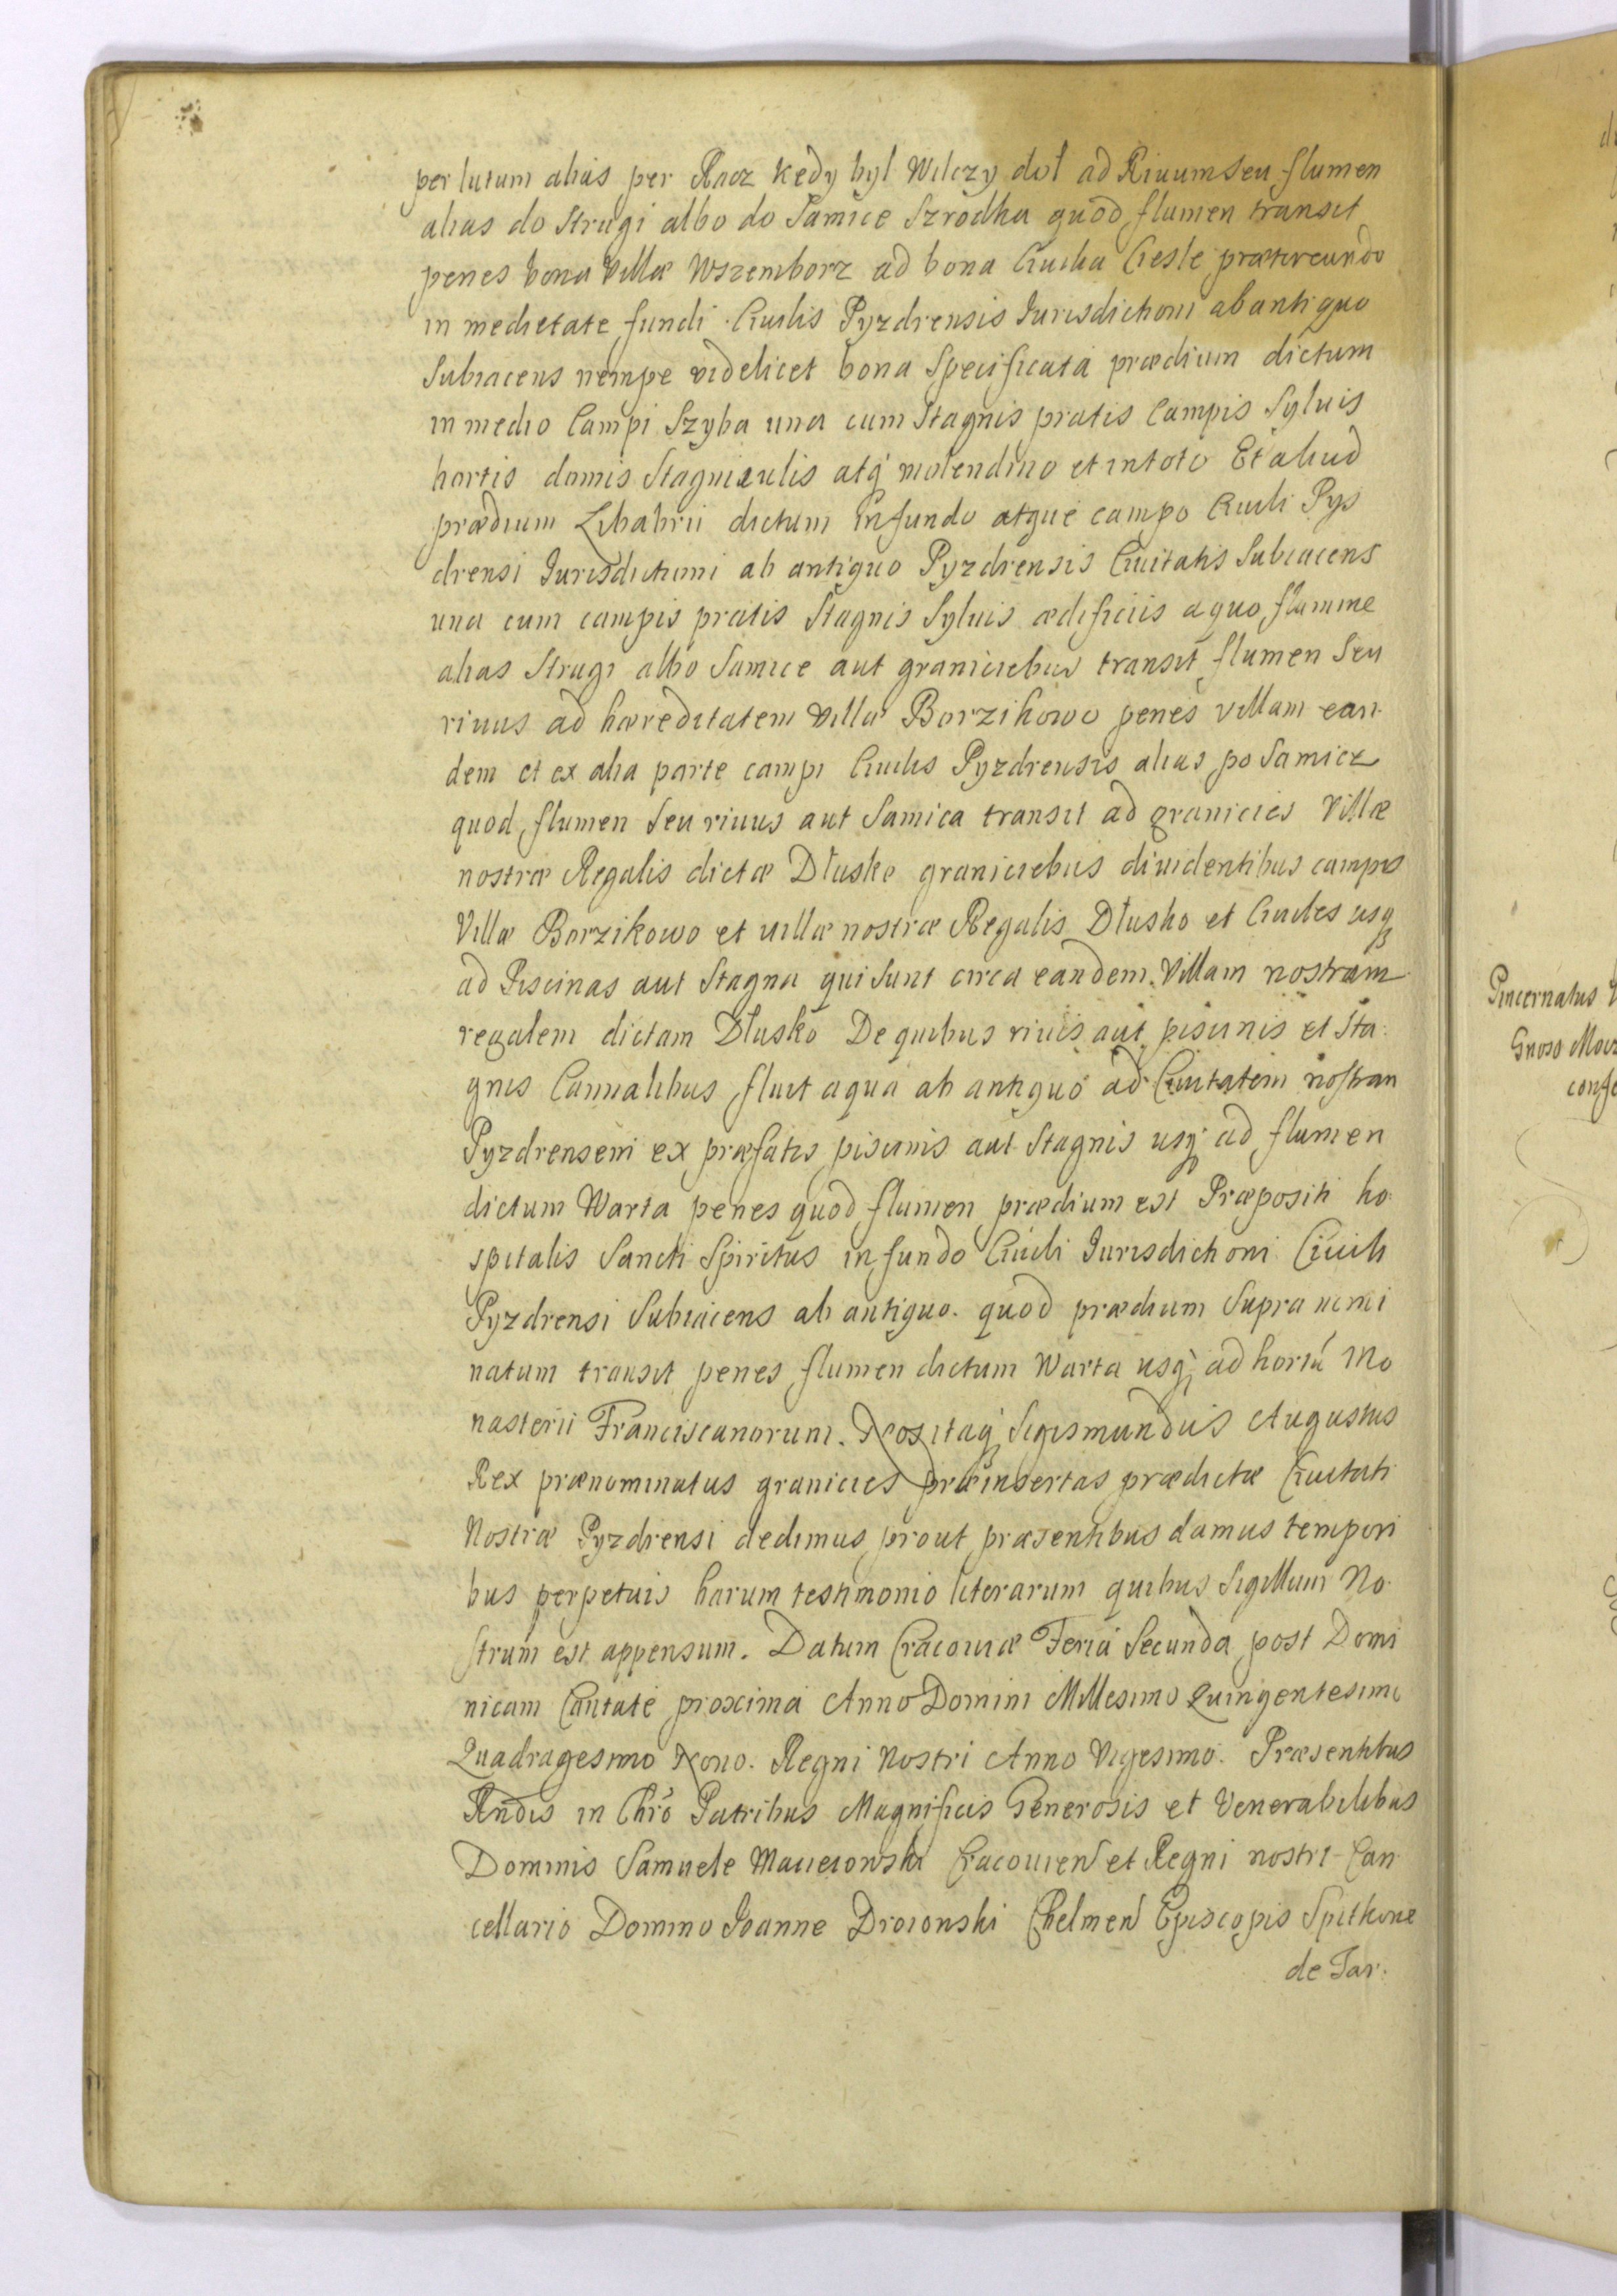 per lutum alias per Racz kedy byl Wilczy doł ad Riuum seu flumen
alias do Strugi albo do Samice Szrodka quod flumen transit
penes bona Villæ Wszemborz ad bona Ciuilia Ciesle prætereundo
in medietate fundi Ciuilis Pyzdrensis Jurisdictioni ab antiquo
Subiacens nempe videlicet bona Specificata prædium dictum
in medio Campi Szyba una cum Stagnis pratis Campis Syluis
hortis domis Stagniculis atq molendino et in toto Et aliud
prædium dictum in fundo atque campo Ciuili Pys
drensi Jurisdictioni ab antiquo Pyzdrensis Ciuitatis Subiacens
una cum campis pratis Stagnis Syluis ædificiis a quo flumine
alias Strugi albo Samice aut graniciebus transit flumen Seu
riuus ad hæreditatem Villæ Borzikowo penes villam ean
dem et ex alia parte campi Ciuilis Pyzdrensis alias po Samicz
quod flumen Seu riuus aut Samica transit ad granicies Villæ
nostræ Regalis dictæ Dłusko graniciebus diuidentibus campos
Villæ Borzikowo et uillæ nostræ Regalis Dłusko et Ciuiles usq
ad Piscinas aut Stagna qui sunt circa eandem Villam nostram
regalem dictam Dłusko De quibus riuis aut piscinis et Sta
gnis Cannalibus fluit aqua ab antiquo ad Ciuitatem nostram
Pyzdrensem ex præfatis piscinis aut Stagnis usq ad flumen
dictum Warta penes quod flumen prædium est Præpositi ho
spitalis Sancti Spiritus in fundo Ciuili Jurisdictioni Ciuili
Pyzdrensi Subiacens ab antiquo. quod prædium Supra nomi
natum transit penes flumen dictum Warta usq ad hortū Mo
nasterii Franciscanorum. Nos itaq Sigismundus Augustus
Rex prænominatus granicies præinsertas prædictæ Ciuitati
Nostræ Pyzdrensi dedimus prout præsentibus damus tempori
bus perpetuis harum testimonio literarum quibus Sigillum No
strum est appensum. Datum Cracouiæ Feria Secunda post Domi
nicam Cantate proxima Anno Domini Millesimo Quingentesimo
Quadragesimo Nono. Regni Nostri Anno Vigesimo. Præsentibus
Rndis in Chrō Patribus Magnificis Generosis et Venerabilibus
Dominis Samuele Macieiowski Cracouien et Regni nostri Can
cellario Domino Joanne Droionski Chelmen Episcopis Spithone
de Tar.
Pincernatus
Gnoso